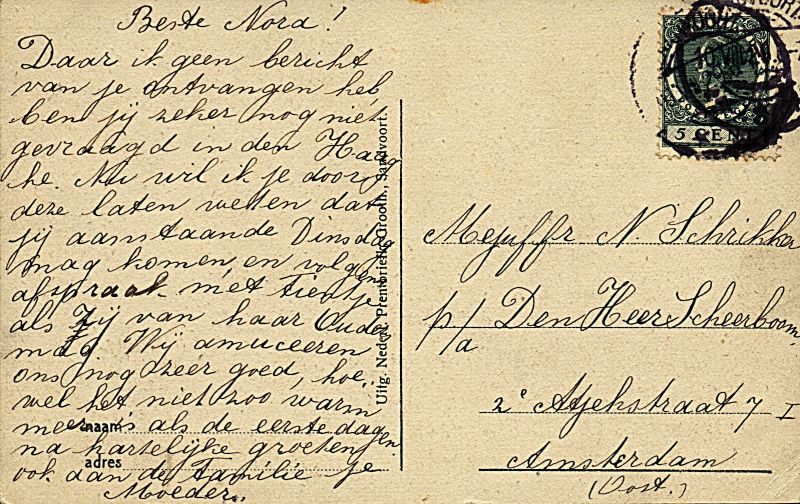 Beste Nora!
Daar ik geen bericht
van je ontvangen heb
ben jij zeker nog niet
gevraagd in den Haag
he. Nu wil ik je door
deze laten weten dat
jij aanstaande Dinsdag
mag komen, en volgens
afspraak met Tientje
als Zij van haar Ouders
mag. Wij amuceeren
ons nog zeer goed, hoe-
wel het niet zoo warm
meer is als de eerste dagen
na hartelijke groeten
ook aan de Familie je
Moeder.
naam
adres
Uitg. Nederl. Prentbriefk. Grooth., Sandvoort.
5 CENT
Mejuffr N. Schrikker
p/a Den Heer Scheerboom
2e Atjehstraat 7 I
Amsterdam
(Oost.)